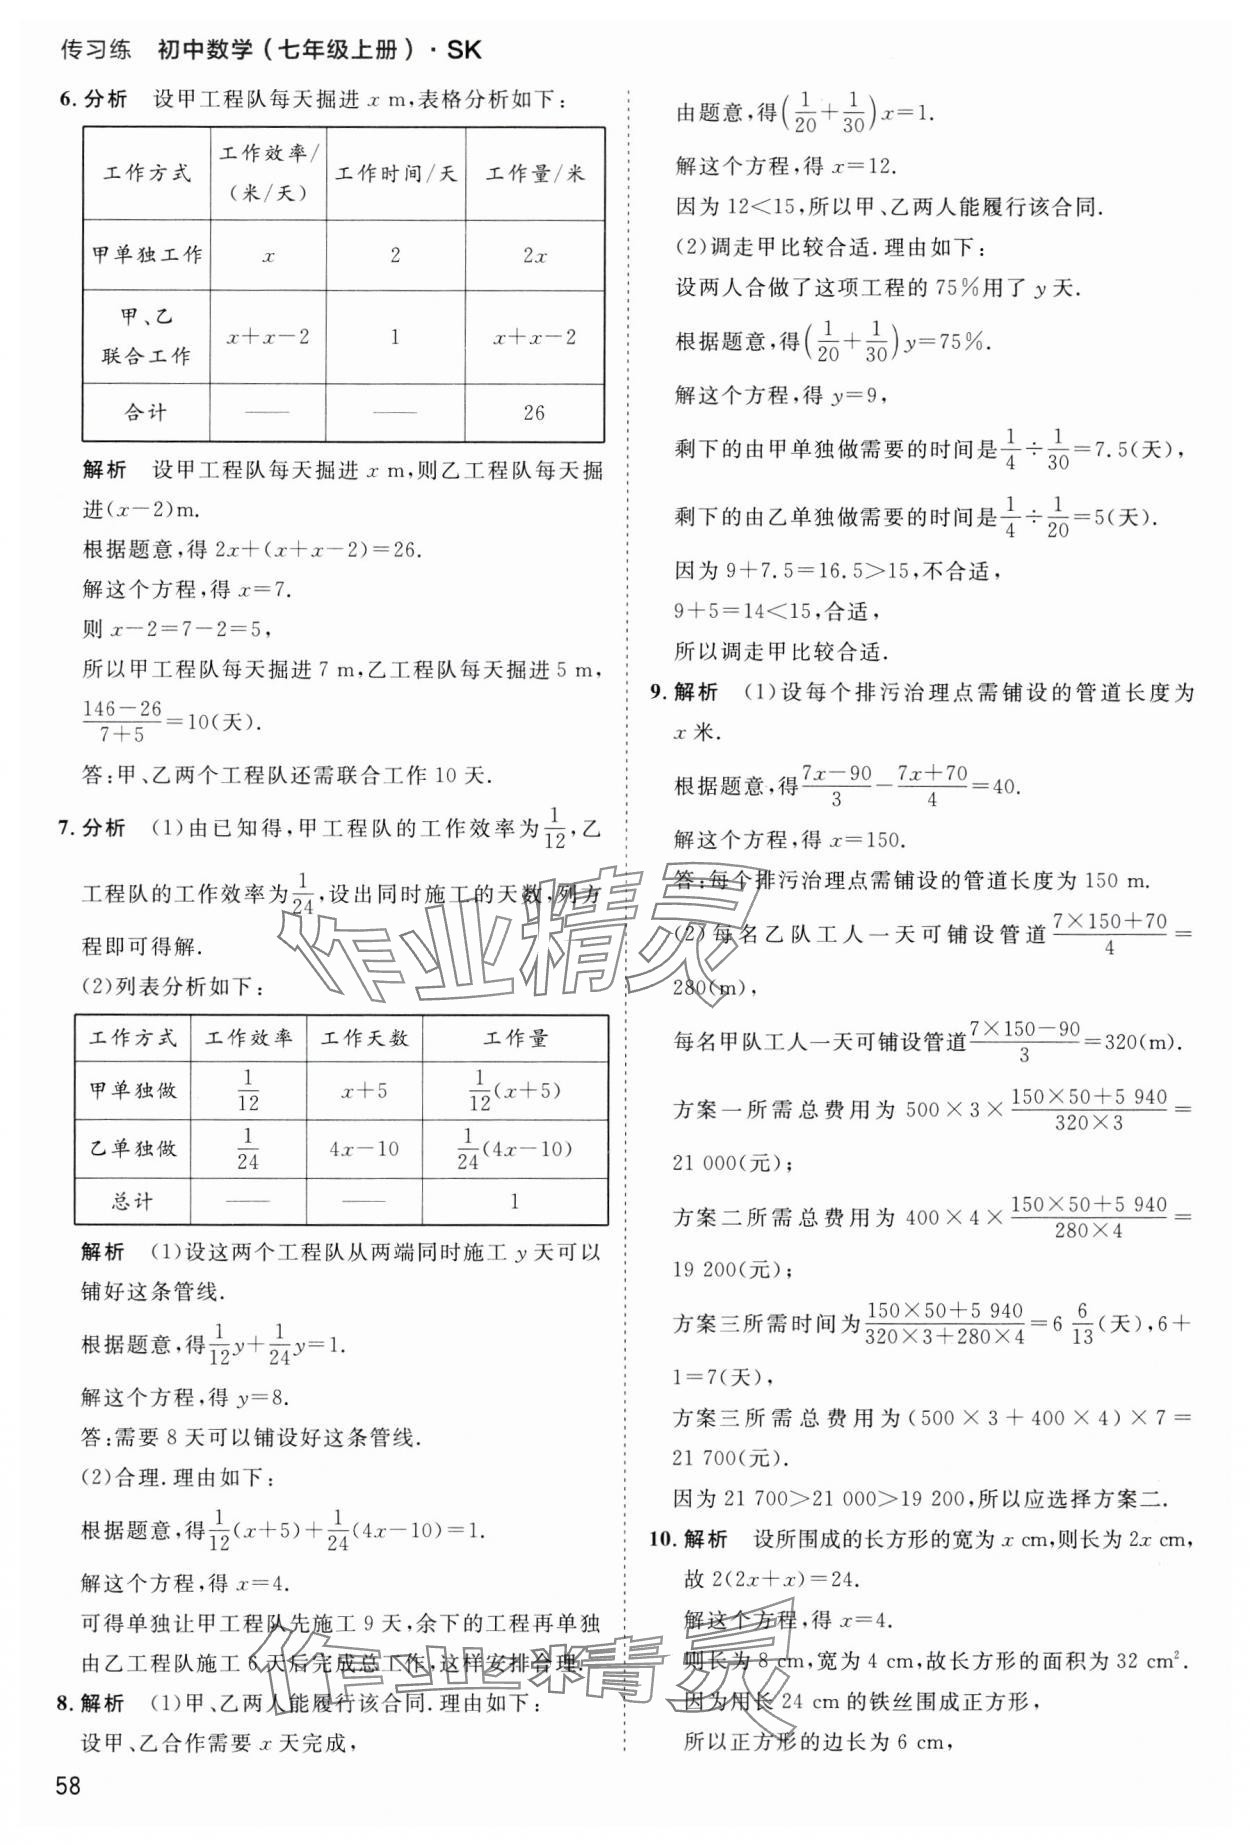 传习练 初中数学(七年级上册)·SK
6. 分析 设甲工程队每天掘进 x m,表格分析如下:
工作方式 工作效率/(米/天) 工作时间/天 工作量/米
甲单独工作 x 2 2x
甲、乙联合工作 x+x-2 1 x+x-2
合计 —— —— 26
解析 设甲工程队每天掘进 x m,则乙工程队每天掘
进(x-2)m.
根据题意,得 2x+(x+x-2)=26.
解这个方程,得 x=7.
则 x-2=7-2=5,
所以甲工程队每天掘进 7 m,乙工程队每天掘进 5 m,
\frac{146-26}{7+5}=10(天).
答:甲、乙两个工程队还需联合工作 10 天.
7. 分析 (1)由已知得,甲工程队的工作效率为\frac{1}{12},乙
工程队的工作效率为\frac{1}{24},设出同时施工的天数,列方
程即可得解.
(2)列表分析如下:
工作方式 工作效率 工作天数 工作量
甲单独做 \frac{1}{12} x+5 \frac{1}{12}(x+5)
乙单独做 \frac{1}{24} 4x-10 \frac{1}{24}(4x-10)
总计 —— —— 1
解析 (1)设这两个工程队从两端同时施工 y 天可以
铺好这条管线.
根据题意,得\frac{1}{12}y+\frac{1}{24}y=1.
解这个方程,得 y=8.
答:需要 8 天可以铺设好这条管线.
(2)合理.理由如下:
根据题意,得\frac{1}{12}(x+5)+\frac{1}{24}(4x-10)=1.
解这个方程,得 x=4.
可得单独让甲工程队先施工 9 天,余下的工程再单独
由乙工程队施工 6 天后完成总工作,这样安排合理.
8. 解析 (1)甲、乙两人能履行该合同.理由如下:
设甲、乙合作需要 x 天完成,
58
由题意,得(\frac{1}{20}+\frac{1}{30})x=1.
解这个方程,得 x=12.
因为 12<15,所以甲、乙两人能履行该合同.
(2)调走甲比较合适.理由如下:
设两人合做了这项工程的 75%用了 y 天.
根据题意,得(\frac{1}{20}+\frac{1}{30})y=75%.
解这个方程,得 y=9,
剩下的由甲单独做需要的时间是\frac{1}{4}÷\frac{1}{30}=7.5(天),
剩下的由乙单独做需要的时间是\frac{1}{4}÷\frac{1}{20}=5(天).
因为 9+7.5=16.5>15,不合适,
9+5=14<15,合适,
所以调走甲比较合适.
9. 解析 (1)设每个排污治理点需铺设的管道长度为
x 米.
根据题意,得\frac{7x-90}{3}-\frac{7x+70}{4}=40.
解这个方程,得 x=150.
答:每个排污治理点需铺设的管道长度为 150 m.
(2)每名乙队工人一天可铺设管道\frac{7×150+70}{4}=
280(m),
每名甲队工人一天可铺设管道\frac{7×150-90}{3}=320(m).
方案一所需总费用为 500×3×\frac{150×50+5 940}{320×3}=
21 000(元);
方案二所需总费用为 400×4×\frac{150×50+5 940}{280×4}=
19 200(元);
方案三所需时间为\frac{150×50+5 940}{320×3+280×4}=6\frac{6}{13}(天),6+
1=7(天),
方案三所需总费用为(500×3+400×4)×7=
21 700(元).
因为 21 700>21 000>19 200,所以应选择方案二.
10. 解析 设所围成的长方形的宽为 x cm,则长为 2x cm,
故 2(2x+x)=24.
解这个方程,得 x=4.
则长为 8 cm,宽为 4 cm,故长方形的面积为 32 cm².
因为用长 24 cm的铁丝围成正方形,
所以正方形的边长为 6 cm,
作业精灵
作业精灵